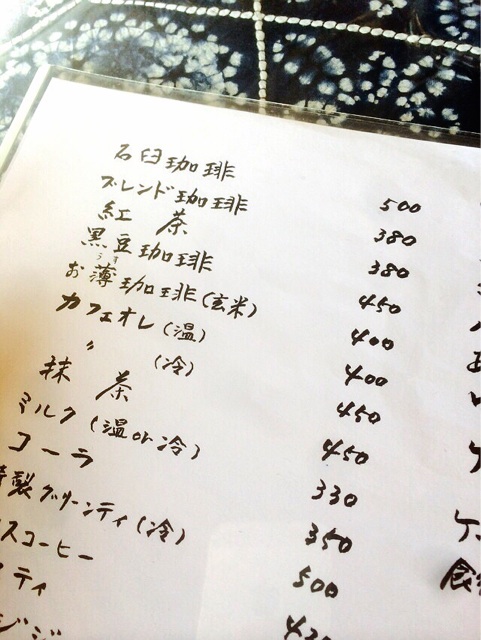 石臼珈琲 500
ブレンド珈琲 380
紅茶 380
黒豆珈琲 450
うす
お薄珈琲(玄米) 400
カフェオレ(温) 400
〃 (冷) 450
抹茶 450
ミルク(温or冷) 330
コーラ 350
製グリーンティ(冷) 500
スコーヒー
ティ